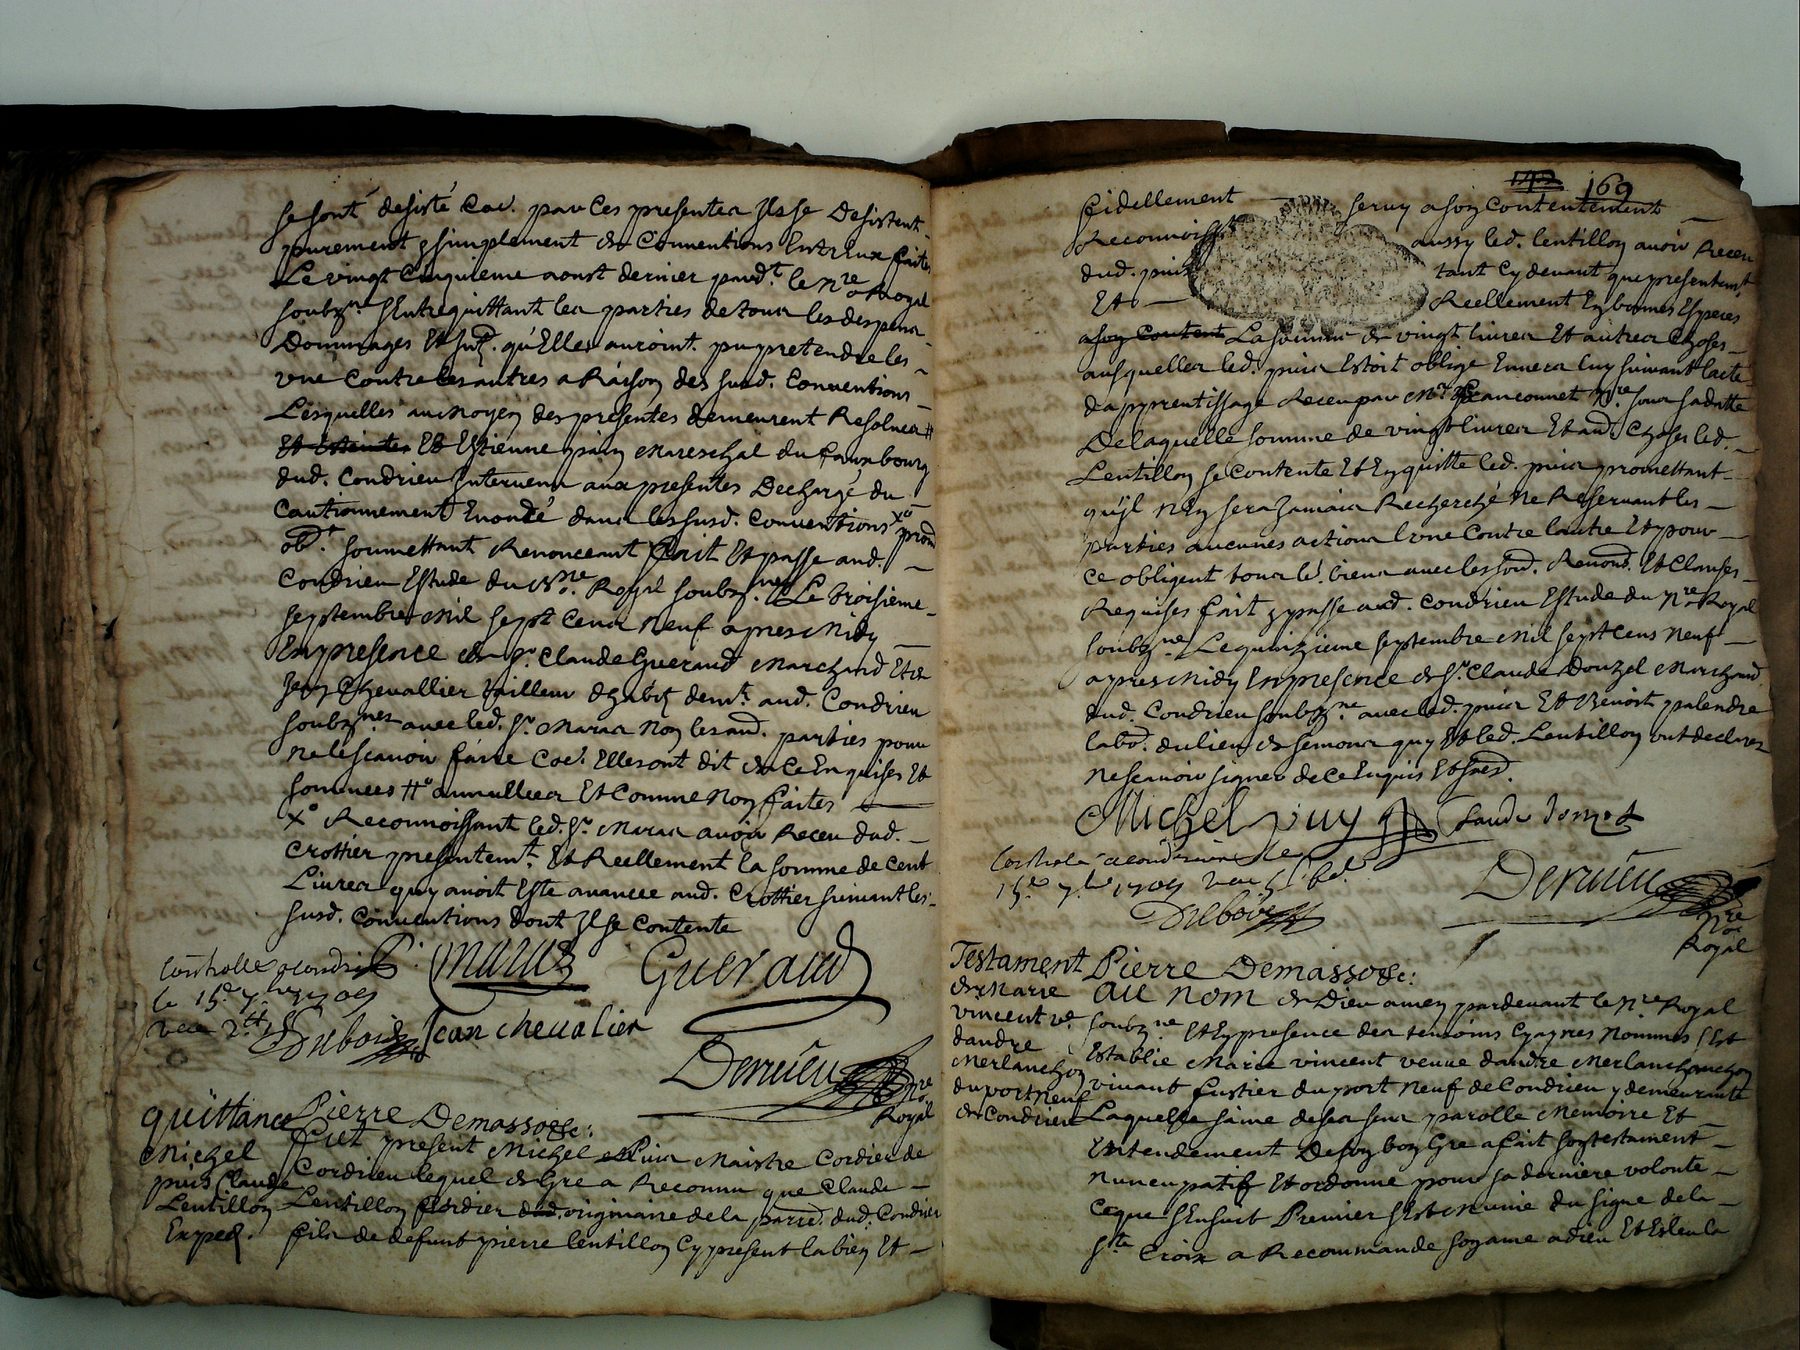 se sont desisté Co̅e. par Ces presentes Ils se Desistent
purement & simplement des Conventions Entr Eux faites
Le vingt Cinquieme aoust dernier pard.t le N.re Royal
soubz.né S'Entrequittant les parties de tous les despens
Dommages Et Int. qu'Elles auroint pu pretendre les
une Contre les autres a Raison des susd. Conventions
Lesquelles au Moyen des presentes demeurent Resolues #
Et Esteintes Et Estienne pain Mareschal du fauxbourg
dud. Condrieu Intervenu aux presentes Dechargé du
Cautionnement Enoncé dans les susd. Conventions x° prom
ob.t soumettant Renonceant fait Et passe aud.
Condrieu Estude du N.re Royal soubz.né Le troisieme
septembre Mil sept Cens Neuf apres Midy
En presence de S.r Claude Gueraud Marchand Et de
Jean Chevallier tailleur d'habit dem.t aud. Condrieu
soubz.nes avec led. S.r Maras Non les aud. parties pour
ne le scavoir faire Co̅e. Elles ont dit de Ce Enquises Et
sommees #° annullees Et Comme Non faites
X° Reconnoissant led. S.r Maras avoir Receu dud.
Crottier presentem.t Et Reellement la somme de Cent
Livres quy avoit Este avancee aud. Crottier suivant les
susd. Conventions dont Il se Contente
Controlle a Condrieu
le 15.e 7.bre 1709
Maras Gueraud
Dubois Jean chevalier
Deruieu
N.re
Royal
quittance
Michel
puis Claude
Lentillon
Exped.
Pierre Demassoze:
fut present Michel Puis Maistre Cordier de
Cordrieu lequel de Gre a Reconnu que Claude
Lentillon Cordier dud. originaire de la parr. dud. Condrieu
fils de defunt pierre lentillon Cy present la bien Et
172 169
fidellement servy a son Contentement
Reconnoiss.t aussy led. lentillon avoir Receu
dud. puis tant Cy devant que presentem.t
Et Reellement En bonnes Especes
a son Content La somme de vingt livres Et autres Choses
ausquelles led. puis Estoit oblige Envers luy suivant l'acte
d'apprentissage Receu par M.re Jeanconnet N.re sous sa datte
De laquelle somme de vingt livres Et aud. Choses led.
Lentillon se Contente Et En quitte led. puis promettant
qu'il N'En sera Jamais Recherché Ne Reservant les
parties aucunes actions l'une Contre l'autre Et pour
Ce obligent tous l.d. biens avec les so̅d. Reno̅d. Et Clauses
Requises fait & passe aud. Condrieu Estude du N.re Royal
soubz.né Le quinzieme septembre Mil sept Cens Neuf
apres Midy En presence de S.r Claude Donzel Marchand
dud. Condrieu soubz.né avec led. puis Et Benoit palendre
labo̅. du lieu de semons quy Et led. Lentillon ont declares
Ne scavoir signer de Ce Enquis Et so̅m.
Michel puy Claude donzel
Controlé a condrieu le
15.e 7.bre 1709
Dubois
Deruieu
N.re
Royal
Testament
de Marie
vincent v.e
d'andre
Merlanchon
du port Neuf
de Condrieu
Pierre Demassoze:
AU NOM de Dieu amen pardevant le N.re Royal
soubz.né Et En presence des temoins Cy apres Nommés s'Est
Establie Marie vincent veuve d'andre Merlanchon
vivant fustier du port Neuf de Condrieu y demeurante
Laquelle saine de ses sens parolle Memoire Et
Entendement De son bon Gre a fait son testament
Nuncupatif Et ordonne pour sa derniere volonte
Ce que s'Ensuit Premier s'Est Munie du signe de la
S.te Croix a Recommande son ame a dieu Et Esleu la